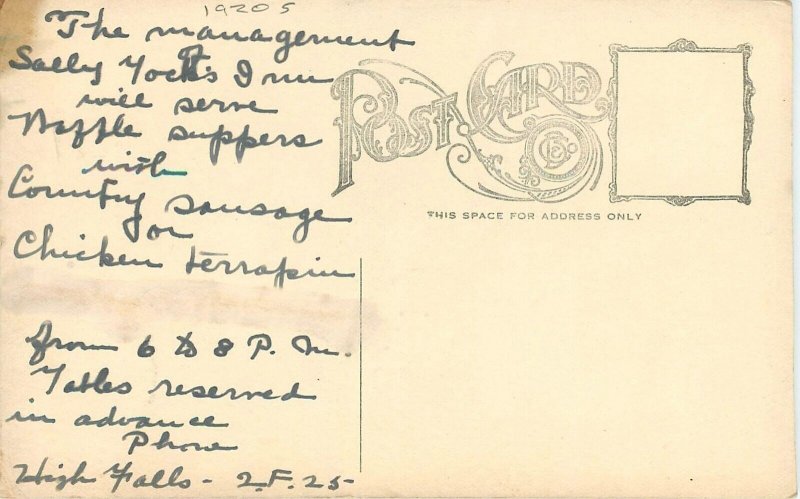 1920s
The management
of
Sally Tock's Inn
will serve
Waffle suppers
with
Country sausage
or
Chicken terrapin
from 6 to 8 P. M.
Tables reserved
in advance
Phone
High Falls - 2.F.25-
POST CARD.
THIS SPACE FOR ADDRESS ONLY